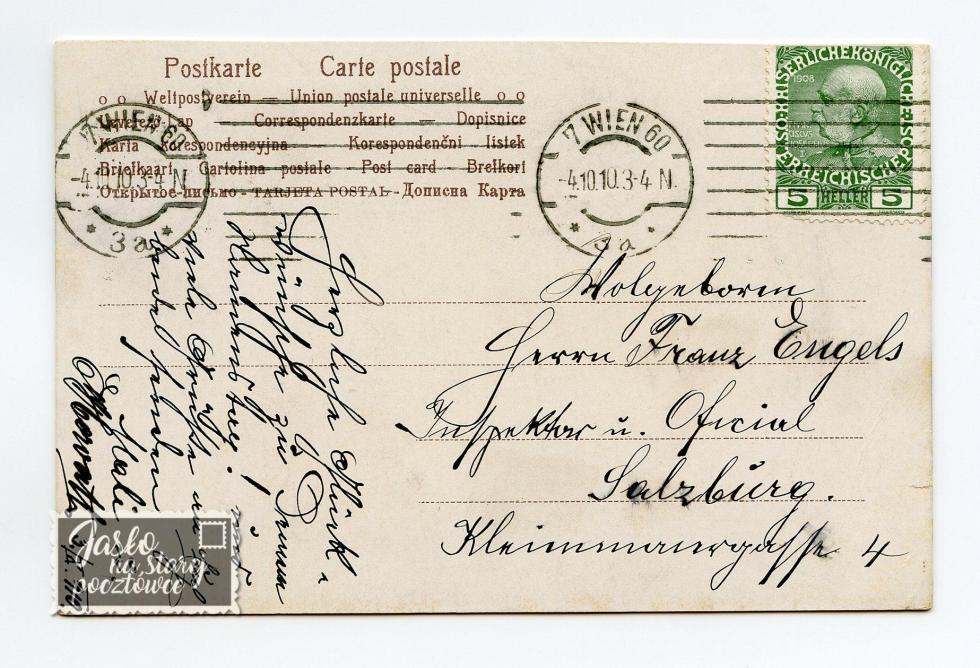 Postkarte Carte postale
o o Weltpostverein — Union postale universelle o o
Levelező-Lap — Correspondenzkarte — Dopisnice
Karta korespondencyjna — Korespondenční lístek
Briefkaart — Cartolina postale — Post card — Brefkort
Открытое письмо — TARJETA POSTAL — Дописна Карта
17 WIEN 60
-4.10.10.3-4 N.
* 3a *
17 WIEN 60
-4.10.10.3-4 N.
* 3a *
KAISERLICHE KÖNIGLICHE
ÖSTERREICHISCHE POST
1908
5 HELLER 5
Wolgeboren
Herrn Franz Engels
Inspektor u. Oficial
Salzburg.
Kleimmayergasse 4
Herzliche Glück-
wünsche zu Deinem
Namenstag!
Viele Grüße
senden
Jasło
na starej
pocztówce